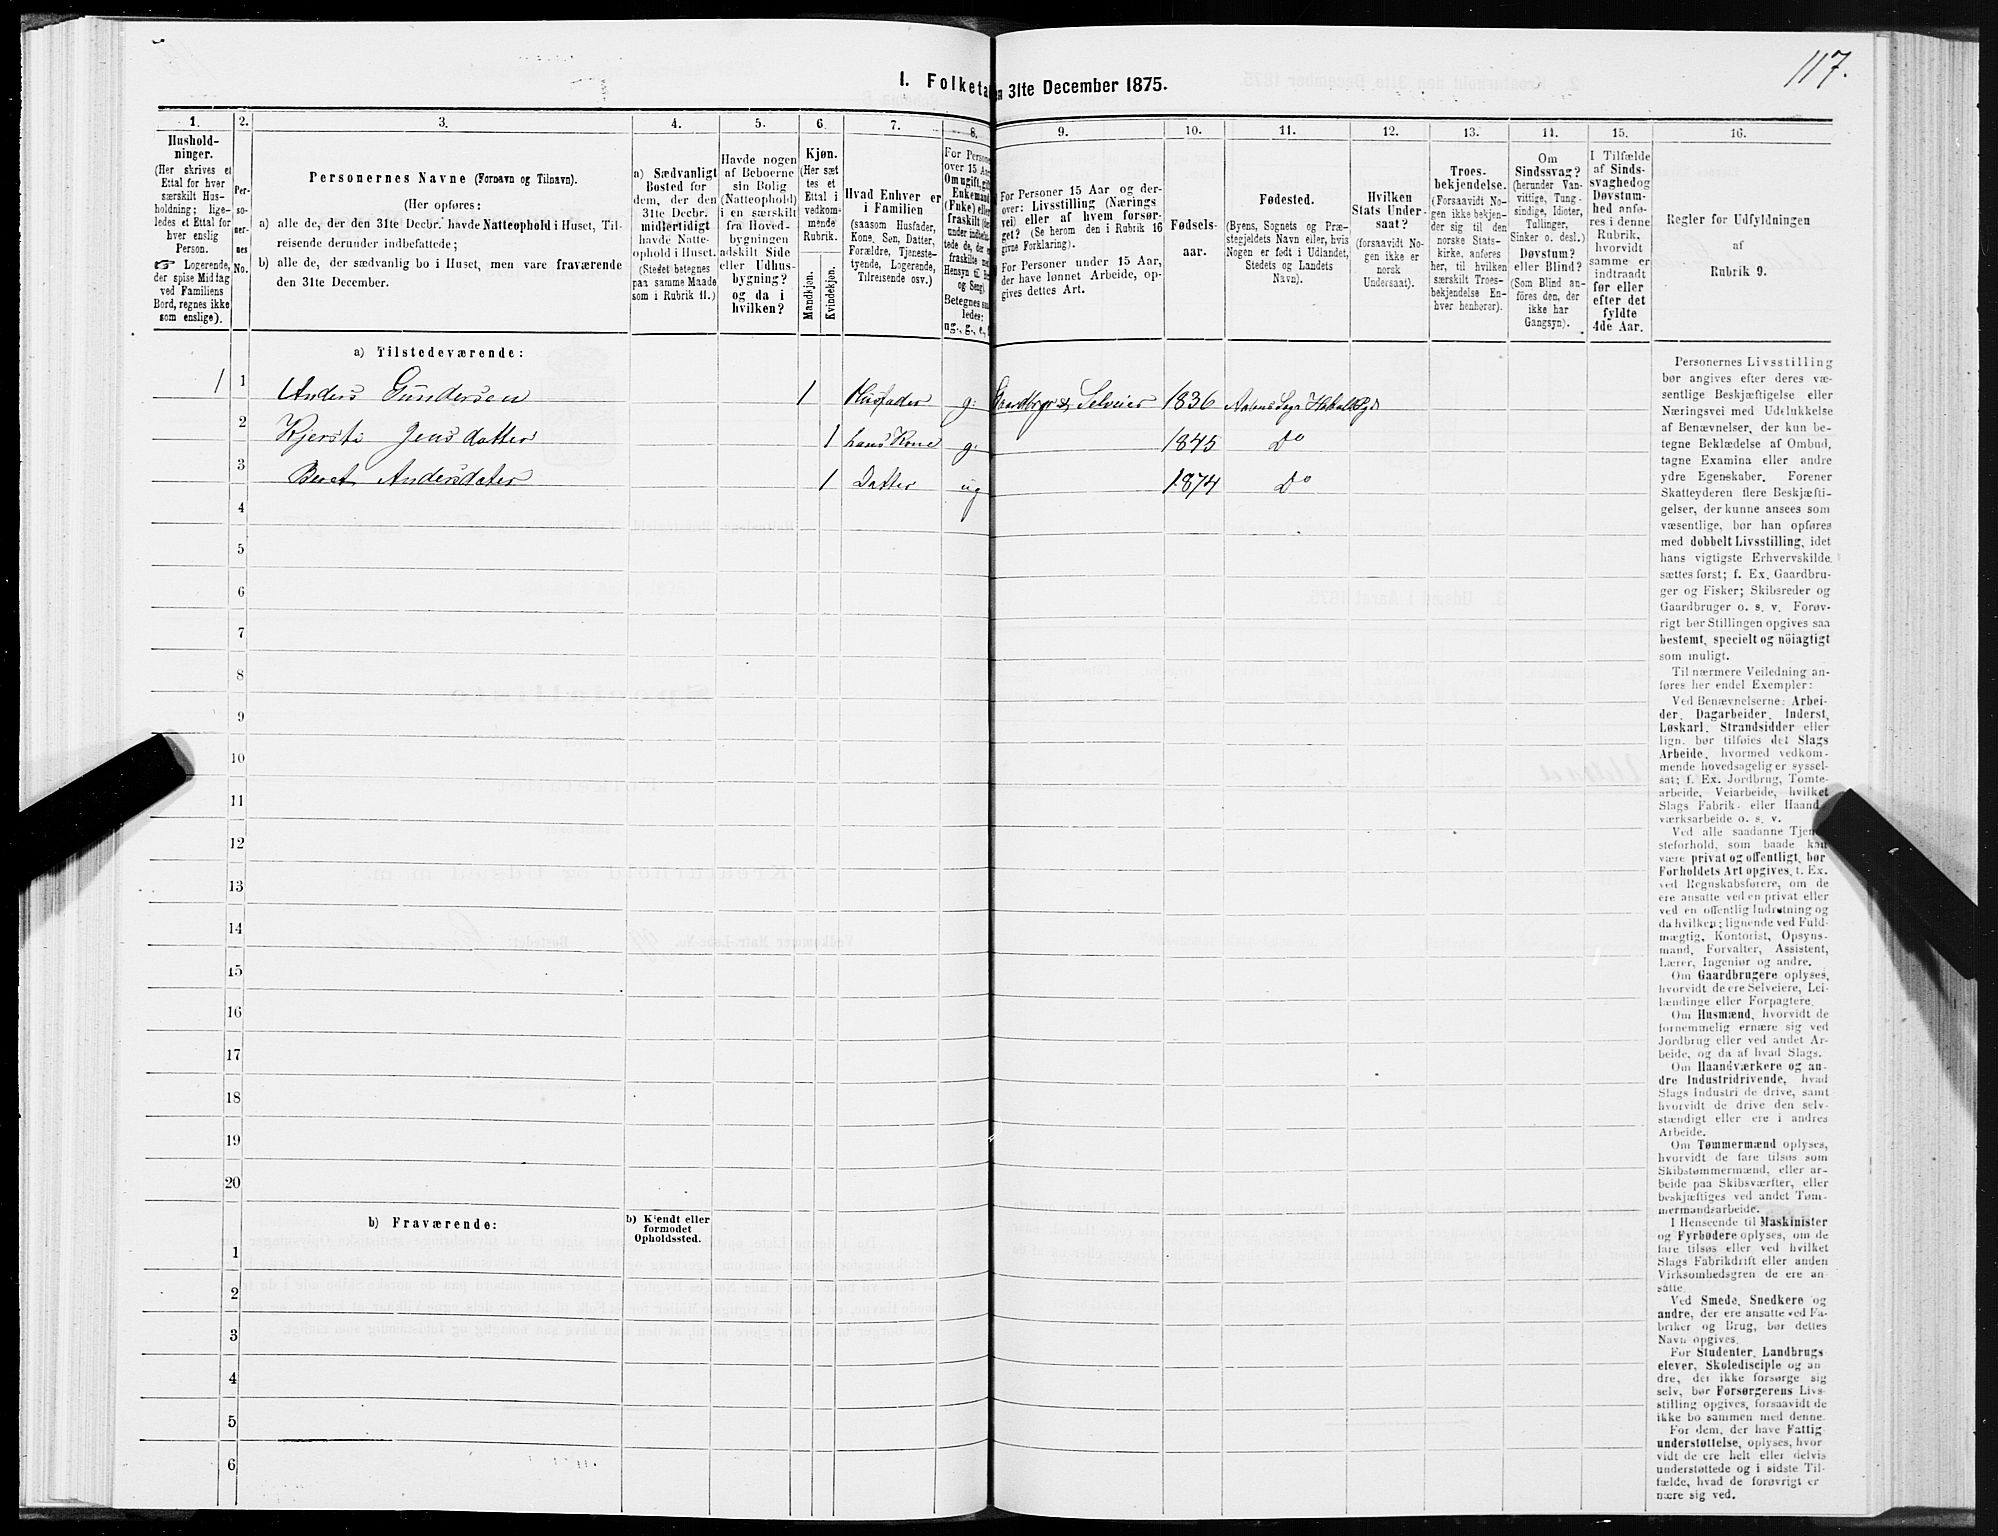 117.
I. Folketa
en 31te December 1875.
1.
2.
3.
4.
5.
6.
7.
8.
9.
10.
11.
12.
13.
14.
15.
16.
Hushold-
ninger.
(Her skrives et
Ettal for hver
særskilt Hus-
holdning; lige-
ledes et Ettal for
hver enslig
Person.
☞ Logerende,
der spise Middag
ved Familiens
Bord, regnes ikke
som enslige).
Per-
so-
ner-
nes
No.
Personernes Navne (Fornavn og Tilnavn).
(Her opføres:
a) alle de, der den 31te Decbr. havde Natteophold i Huset, Til-
reisende derunder indbefattede;
b) alle de, der sædvanlig bo i Huset, men vare fraværende
den 31te December.
a) Sædvanligt
Bosted for
dem, der den
31te Decbr.
midlertidigt
havde Natte-
ophold i Huset.
(Stedet betegnes
paa samme Maade
som i Rubrik 11.)
Havde nogen
af Beboerne
sin Bolig
(Natteophold)
i en særskilt
fra Hoved-
bygningen
adskilt Side
eller Udhus-
bygning?
og da i
hvilken?
Kjøn.
(Her sæt
tes et
Ettal i
vedkom-
mende
Rubrik.
Mandkjøn.
Kvindekjøn.
Hvad Enhver er
i Familien
(saasom Husfader,
Kone, Søn, Datter,
Forældre, Tjeneste-
tyende, Logerende,
Tilreisende osv.)
For Persone
over 15 Aar
Om ugift, gift
Enkemand
(Enke) eller
fraskilt (der-
under indbefat-
tede de, der e
fraskilte med
Hensyn til Bo
og Seng).
Betegnes saa
ledes:
ug., g., e., f
For Personer 15 Aar og der-
over: Livsstilling (Nærings
vei) eller af hvem forsør-
get? (Se herom den i Rubrik 16
givne Forklaring).
For Personer under 15 Aar,
der have lønnet Arbeide, op-
gives dettes Art.
Fødsels-
aar.
Fødested.
(Byens, Sognets og Præ-
stegjeldets Navn eller, hvis
Nogen er født i Udlandet,
Stedets og Landets
Navn).
Hvilken
Stats Under-
saat?
(forsaavidt No-
gen ikke er
norsk
Undersaat).
Troes-
bekjendelse.
(Forsaavidt No-
gen ikke bekjen-
der sig til den
norske Stats-
kirke, anføres
her, til hvilken
særskilt Troes-
bekjendelse En-
hver henhører).
Om
Sindssvag?
(herunder Van-
vittige, Tung-
sindige, Idioter,
Tullinger,
Sinker o. desl.)
Døvstum?
eller Blind?
(Som Blind an-
føres den, der
ikke har
Gangsyn).
I Tilfælde
af Sinds-
svaghed og
Døvstum-
hed anfø-
res i denne
Rubrik,
hvorvidt
samme er
indtraadt
før eller
efter det
fyldte
4de Aar.
Regler for Udfyldningen
af
Rubrik 9.
a) Tilstedeværende:
1 1 Anders Gundersen 1 Husfader g: Gaardbrger & Selveier 1836 Aalens Sogn Holtaalens Pgd
2 Kjersti Jensdatter 1 hans Kone g: 1845 Do
3 Beret Andersdater 1 Datter ug 1874 Do
4
5
6
7
8
9
10
11
12
13
14
15
16
17
18
19
20
b) Fraværende:
b) Kjendt eller
formodet
Opholdssted.
1
2
3
4
5
6
Personernes Livsstilling
bør angives efter deres væ-
sentlige Beskjæftigelse eller
Næringsvei med Udelukkelse
af Benævnelser, der kun be-
tegne Beklædelse af Ombud,
tagne Examina eller andre
ydre Egenskaber. Forener
Skatteyderen flere Beskjæfti-
gelser, der kunne ansees som
væsentlige, bør han opføres
med dobbelt Livsstilling, idet
hans vigtigste Erhvervskilde
sættes først; f. Ex. Gaardbru-
ger og Fisker; Skibsreder og
Gaardbruger o. s. v. Forøv-
rigt bør Stillingen opgives saa
bestemt, specielt og nöiagtigt
som muligt.
Til nærmere Veiledning an-
føres her endel Exempler:
Ved Benævnelserne: Arbei-
der, Dagarbeider, Inderst,
Løskarl, Strandsidder eller
lign. bør tilføies det Slags
Arbeide, hvormed vedkom-
mende hovedsagelig er syssel-
sat; f. Ex. Jordbrug, Tomte-
arbeide, Veiarbeide, hvilket
Slags Fabrik- eller Haand-
værksarbeide o. s. v.
Ved alle saadanne Tjene-
steforhold, som baade kan
være privat og offentligt, bør
Forholdets Art opgives, f. Ex.
ved Regnskabsførere, om de
ere ansatte ved en privat eller
ved en offentlig Indretning og
da hvilken; lignende ved Fuld-
mægtig, Kontorist, Opsyns-
mand, Forvalter, Assistent,
Lærer, Ingeniør og andre.
Om Gaardbrugere oplyses,
hvorvidt de ere Selveiere, Lei-
lændinge eller Forpagtere.
Om Husmænd, hvorvidt de
fornemmelig ernære sig ved
Jordbrug eller ved andet Ar-
beide, og da af hvad Slags.
Om Haandværkere og an-
dre Industridrivende, hvad
Slags Industri de drive, samt
hvorvidt de drive den selv-
stændigt eller ere i andres
Arbeide.
Om Tømmermænd oplyses,
hvorvidt de fare tilsøs som
Skibstømmermænd, eller ar-
beide paa Skibsværfter, eller
beskjæftiges ved andet Tøm-
mermandsarbeide.
I Henseende til Maskinister
og Fyrbødere oplyses, om de
fare tilsøs eller ved hvilket
Slags Fabrikdrift eller anden
Virksomhedsgren de ere an-
satte.
Ved Smede, Snedkere og
andre, der ere ansatte ved Fa-
briker og Brug, bør dettes
Navn opgives.
For Studenter, Landbrugs-
elever, Skoledisciple og an
dre, der ikke forsørge sig
selv, bør Forsørgerens Livs-
stilling opgives, forsaavidt de
ikke bo sammen med denne.
For dem, der have Fattig
understøttelse, oplyses, hvor
vidt de ere helt eller delvis
understøttede og i sidste Til-
fælde, hvad de forøvrigt er
nære sig ved.